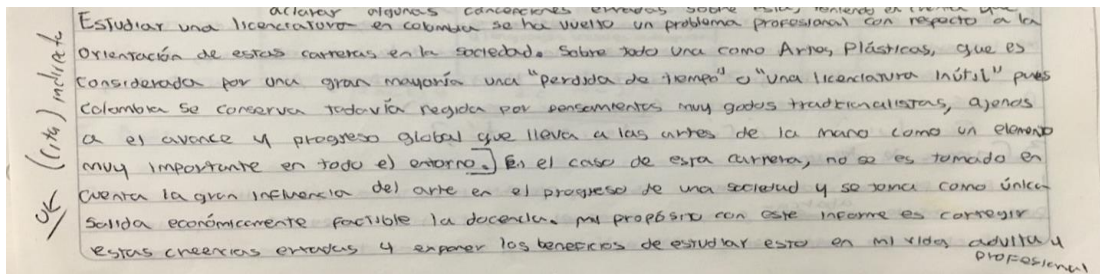 aclarar algunas concepciones erradas sobre estas, teniendo en cuenta que
Estudiar una licenciatura en colombia se ha vuelto un problema profesional con respecto a la
Orientación de estas carreras en la sociedad. Sobre todo una como Artes Plásticas, que es
Considerada por una gran mayoría una "perdida de tiempo" o "una licenciatura inútil" pues
Colombia se conserva todavía regida por pensamientos muy godos tradicionalistas, ajenos
a el avance y progreso global que lleva a las artes de la mano como un elemento
muy importante en todo el entorno.] En el caso de esta carrera, no se es tomado en
cuenta la gran influencia del arte en el progreso de una sociedad y se toma como única
salida económicamente factible la docencia. mi propósito con este informe es corregir
estas creencias erradas y exponer los beneficios de estudiar esto en mi vida adulta y
profesional
(cita)